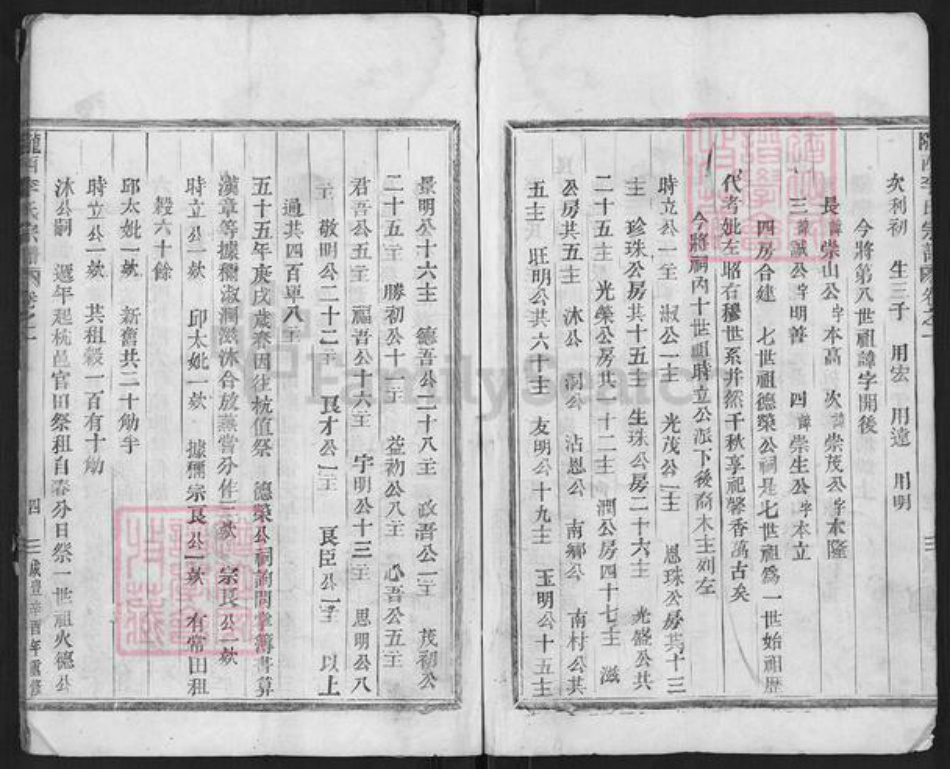 隴西李氏宗譜 卷之一
次利初 生三子 用宏 用遠 用明
今將第八世祖諱字開後
長諱崇山公字本高 次諱崇茂公字本隆
三諱誠公字明善 四諱崇生公字本立
四房合建 七世祖德榮公祠是七世祖為一世始祖歷
代考妣左昭右穆世系井然千秋享祀馨香萬古矣
今將祠內十世祖時立公派下後裔木主列左
時立公一主 淑公一主 光茂公一主 恩珠公房共十三
主 珍珠公房共十五主 生珠公房二十六主 光盛公共
二十五主 光榮公房共十二主 潤公房四十七主 滋
公房共五主 沐公 洞公 沾恩公 南鄉公 南村公共
五主 旺明公共六十主 友明公十九主 玉明公十五主
景明公十六主 德吾公二十八主 政吾公一主 茂初公
二十五主 勝初公十一主 益初公八主 心吾公五主
君吾公五主 福吾公十六主 宇明公十三主 思明公八
主 敬明公二十二主 良才公一主 良臣公一主 以上
通共四百單八主
五十五年庚戌歲春因往杭值祭 德榮公祠詢問掌簿書算
漢章等據穪淑洞滋沐合放蒸嘗分作三欵 宗良公一欵
時立公一欵 邱太妣一欵 據穪宗良公一欵 有常田租
穀六十餘
邱太妣一欵 新舊共二十觔乎
時立公一欵 其租穀一百有十觔
沐公嗣 遞年起杭邑官田祭租自春分日祭一世祖火德公
隴西李氏宗譜 卷之一 四 咸豐辛酉年重修
FamilySearch